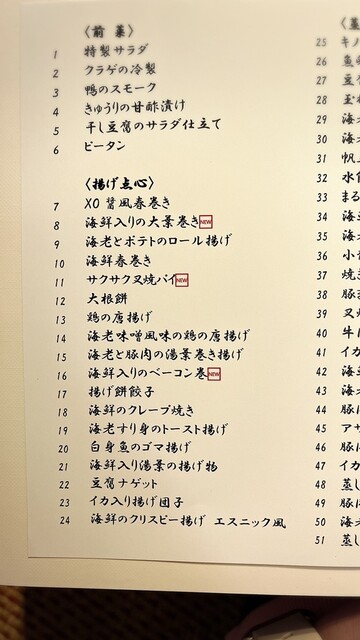 〈前菜〉
1 特製サラダ
2 クラゲの冷製
3 鴨のスモーク
4 きゅうりの甘酢漬け
5 干し豆腐のサラダ仕立て
6 ピータン
〈揚げ点心〉
7 XO醤風春巻き
8 海鮮入りの大葉巻き NEW
9 海老とポテトのロール揚げ
10 海鮮春巻き
11 サクサク叉焼パイ NEW
12 大根餅
13 鶏の唐揚げ
14 海老味噌風味の鶏の唐揚げ
15 海老と豚肉の湯葉巻き揚げ
16 海鮮入りのベーコン巻 NEW
17 揚げ餅餃子
18 海鮮のクレープ焼き
19 海老すり身のトースト揚げ
20 白身魚のゴマ揚げ
21 海鮮入り湯葉の揚げ物
22 豆腐ナゲット
23 イカ入り揚げ団子
24 海鮮のクリスピー揚げ エスニック風
25 キノ
26
27
28
29 海
30 海
31 帆
32 水
33 まる
34 海
35 海
36 小
37 焼き
38 豚
39 叉
40 牛
41 イカ
42 海
43 海
44 豚
45 アサ
46 豚
47 イカ
48 蒸し
49 豚
50 海
51 蒸し